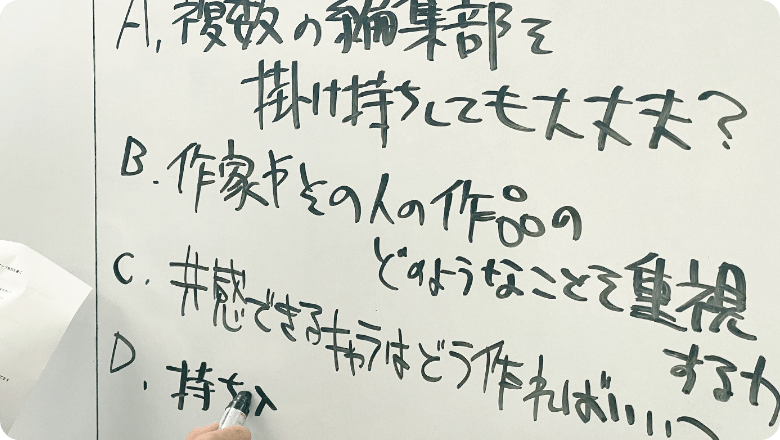 A. 複数の編集部を
掛け持ちしても大丈夫?
B. 作家やその人の作品の
どのようなことを重視
するか
C. 共感できるキャラはどう作ればいい?
D. 持ち込